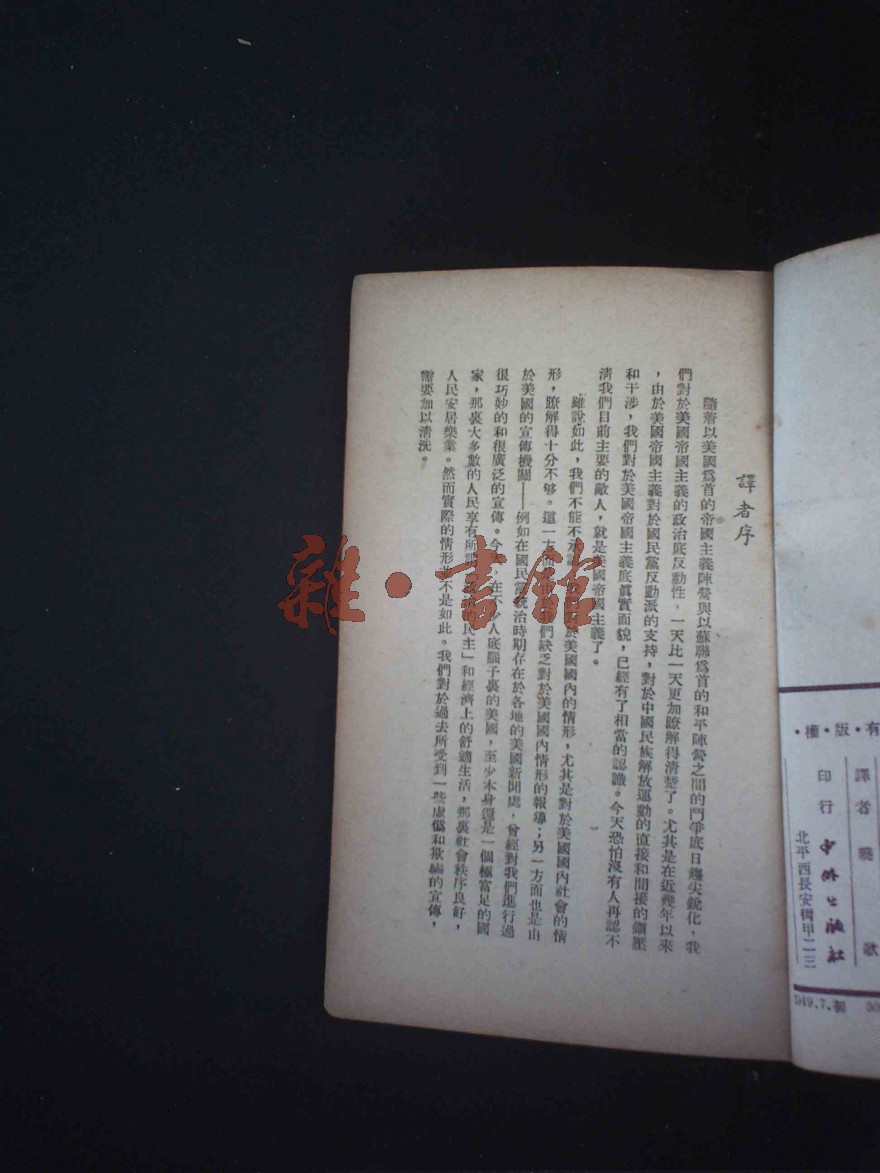 有·版·權·
譯者
印行 中外出版社
北平西長安街甲二三
1949.7.初
譯者序
隨着以美國爲首的帝國主義陣營與以蘇聯爲首的和平陣營之間的鬥爭底日趨尖銳化,我
們對於美國帝國主義的政治底反動性,一天比一天更加瞭解得清楚了。尤其是在近幾年以來
,由於美國帝國主義對於國民黨反動派的支持,對於中國民族解放運動的直接和間接的鎭壓
和干涉,我們對於美國帝國主義底眞實面貌,已經有了相當的認識。今天恐怕沒有人再認不
清我們目前主要的敵人,就是美國帝國主義了。
雖說如此,我們不能不承認於美國國內的情形,尤其是對於美國國內社會的情
形,瞭解得十分不够。這一方面們缺乏對於美國國內情形的報導;另一方面也是由
於美國的宣傳機關——例如在國民黨統治時期存在於各地的美國新聞處,曾經對我們進行過
很巧妙的和很廣泛的宣傳。今天,在不少人底腦子裏的美國,至少本身還是一個極富足的國
家,那裏大多數的人民享有所民主」和經濟上的舒適生活,那裏社會秩序良好,
人民安居樂業。然而實際的情形不是如此。我們對於過去所受到一些虛僞和欺騙的宣傳,
需要加以清洗。
雜·書館